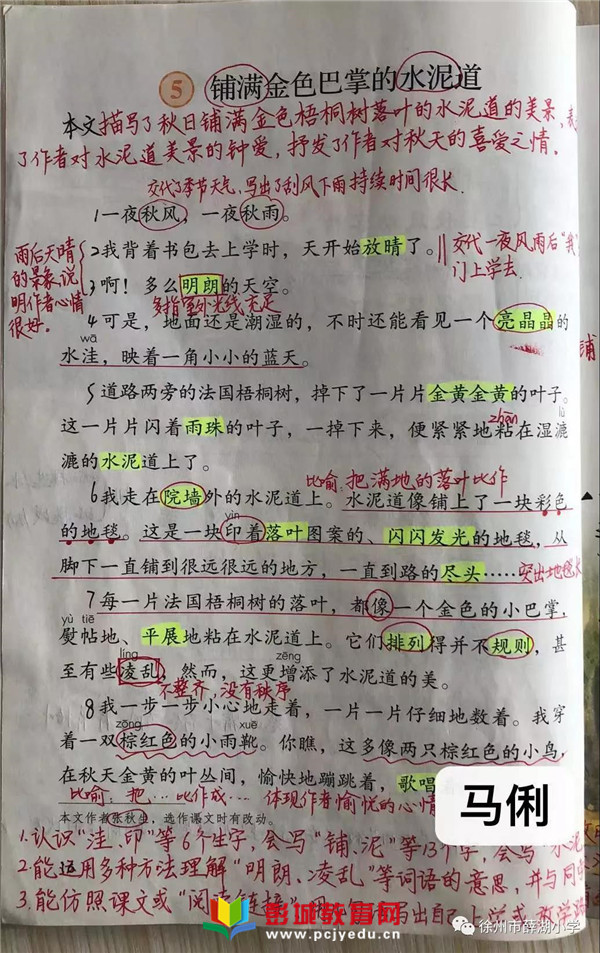 5 铺满金色巴掌的水泥道
本文描写了秋日铺满金色梧桐树落叶的水泥道的美景,表
了作者对水泥道美景的钟爱,抒发了作者对秋天的喜爱之情。
交代了季节天气,写出了刮风下雨持续时间很长.
1一夜秋风,一夜秋雨。
雨后天晴
的景象,说
明作者心情
很好。
2我背着书包去上学时,天开始放晴了。
交代一夜风雨后"我"
门上学去.
3啊!多么明朗的天空。
多指室外光线充足
4可是,地面还是潮湿的,不时还能看见一个亮晶晶的
wā
水洼,映着一角小小的蓝天。
5道路两旁的法国梧桐树,掉下了一片片金黄金黄的叶子。
zhān lù
这一片片闪着雨珠的叶子,一掉下来,便紧紧地粘在湿漉
漉的水泥道上了。
比喻:把满地的落叶比作
6我走在院墙外的水泥道上。水泥道像铺上了一块彩色
yìn
的地毯。这是一块印着落叶图案的、闪闪发光的地毯,从
脚下一直铺到很远很远的地方,一直到路的尽头……
突出地毯长
7每一片法国梧桐树的落叶,都像一个金色的小巴掌,
yù tiē
熨帖地、平展地粘在水泥道上。它们排列得并不规则,甚
líng zēng
至有些凌乱,然而,这更增添了水泥道的美。
不整齐,没有秩序
8我一步一步小心地走着,一片一片仔细地数着。我穿
zōng xuē
着一双棕红色的小雨靴。你瞧,这多像两只棕红色的小鸟,
在秋天金黄的叶丛间,愉快地蹦跳着,歌唱
比喻:把…比作成… 体现作者愉悦的心情
马俐
本文作者张秋生,选作课文时有改动。
1.认识"洼、印"等6个生字,会写"铺、泥"等13个字,会写"水泥
2.能运用多种方法理解"明朗、凌乱"等词语的意思,并与同
3.能仿照课文或"阅读链接"写出自己上学或放学路
彭城教育网
www.pcjyedu.cn
徐州市薛湖小学